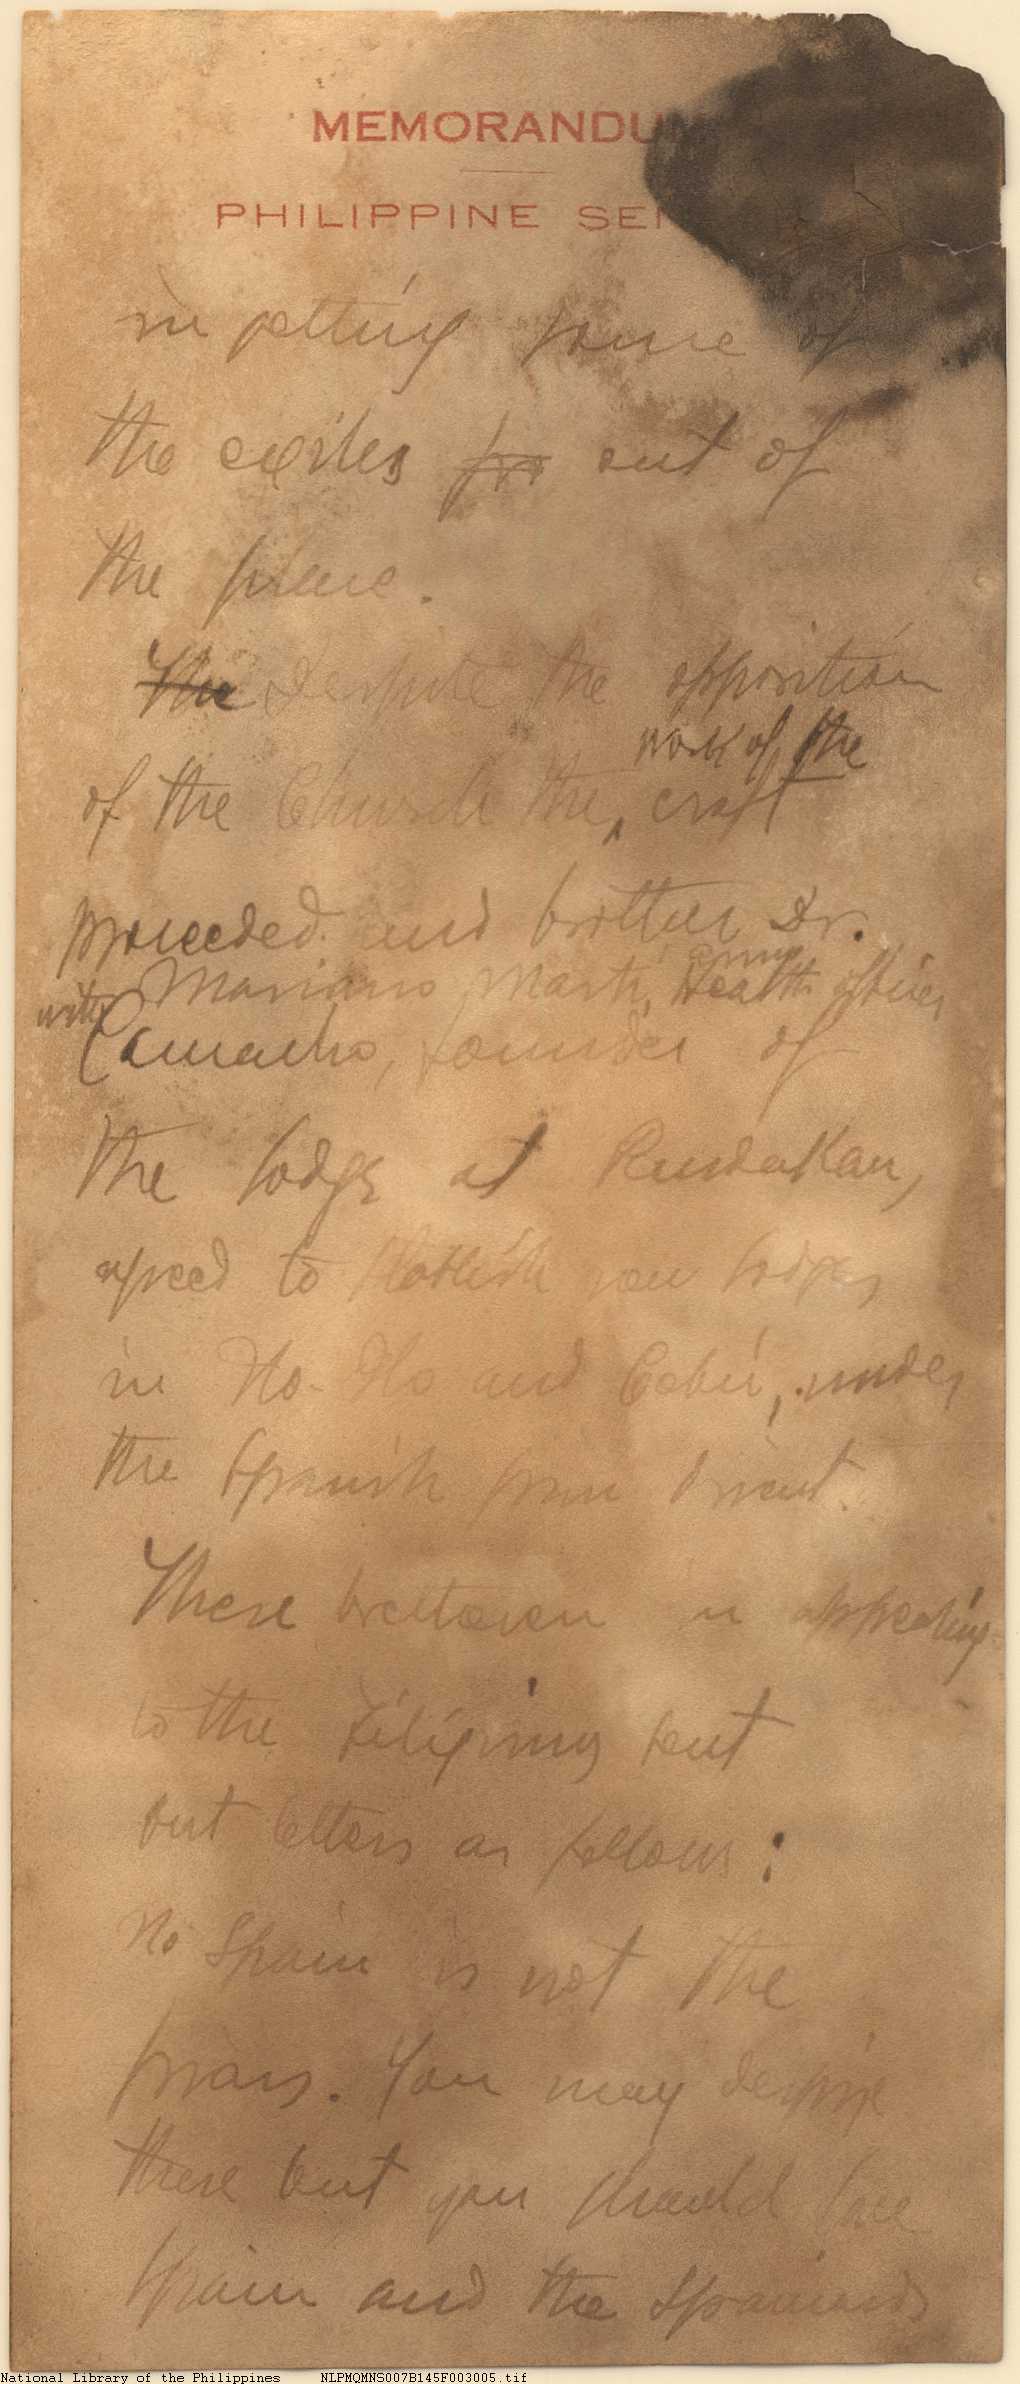 MEMORANDUM
PHILIPPINE SEN
in getting some of
the exiles for out of
the place.
The Despite the opposition
work of the
of the Church the craft
proceeded and brother Dr.
army
Mariano Marti, Health officer
with
Camacho, founder of
the lodge at
agreed to establish new lodges
in Ilo-Ilo and Cebú, under
the Spanish gran orient.
These bretheren in appealing
to the Filipinos sent
out letters as follows:
No Spain is not the
friars. You may despise
these but you should love
Spain and the Spaniards
National Library of the Philippines NLPMQMNS007B145F003005.tif